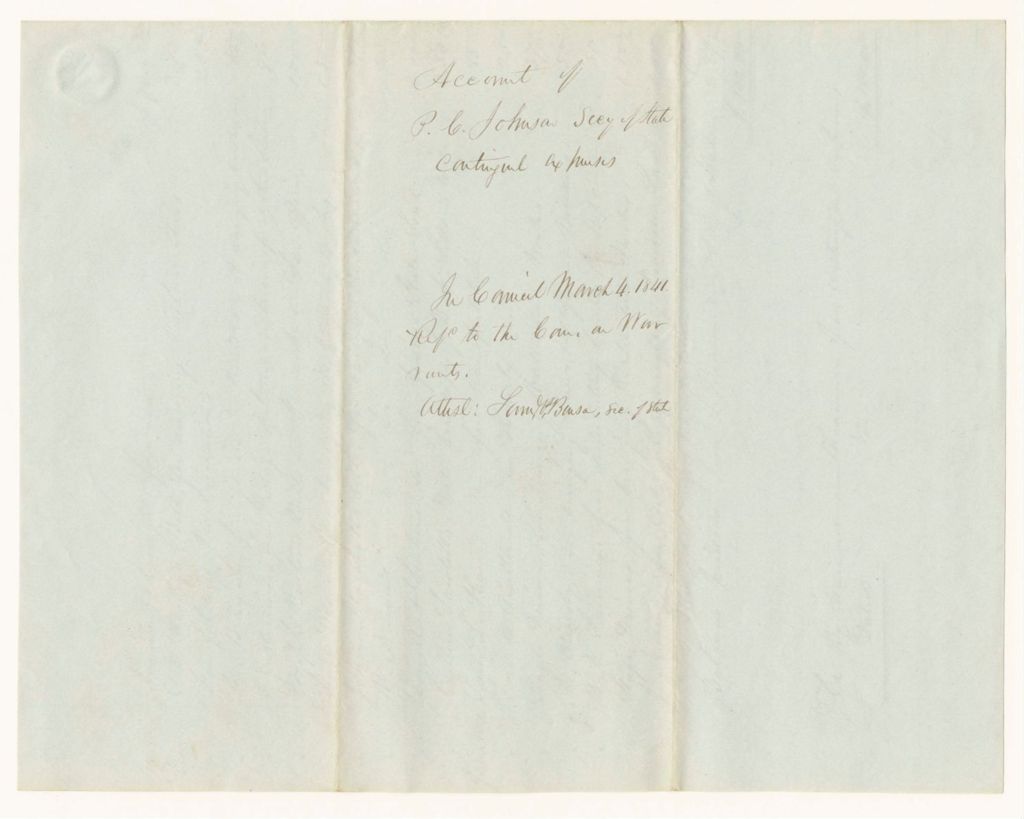 Account of
P. C. Johnson Secy of State
Contingent expenses
In Council March 4. 1841
Refd to the Com. on War
rants.
Attest: Saml P Benson, Sec. of State